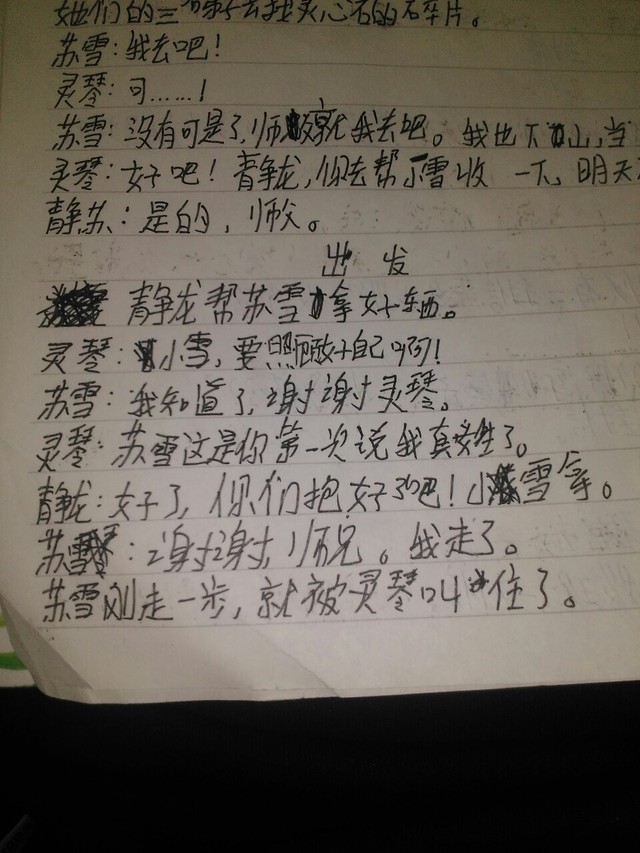 她们的三弟子去找灵心石的碎片。
苏雪：我去吧！
灵琴：可……！
苏雪：没有可是了，师就我去吧。我也下山，当
灵琴：好吧！静龙，你去帮雪收一下，明天
静苏：是的，师父。
出发
静龙帮苏雪拿好东西。
灵琴：小雪，要照顾好自己啊！
苏雪：我知道了，谢谢灵琴。
灵琴：苏雪这是你第一次说我真名。
静龙：好了，你们抱好了吧！小雪拿。
苏雪：谢谢，师兄。我走了。
苏雪刚走一步，就被灵琴叫住了。